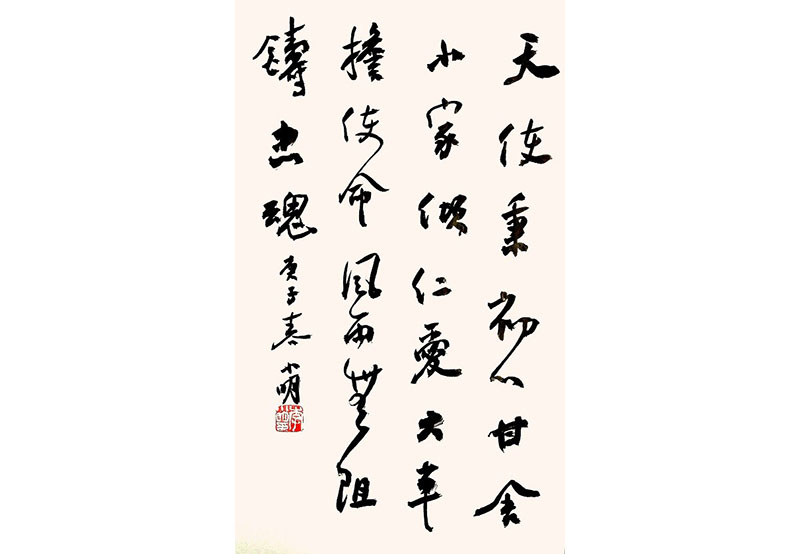 天使秉初心甘舍
小家傾仁愛大軍
擔使命風雨無阻
鑄忠魂
庚子春小明